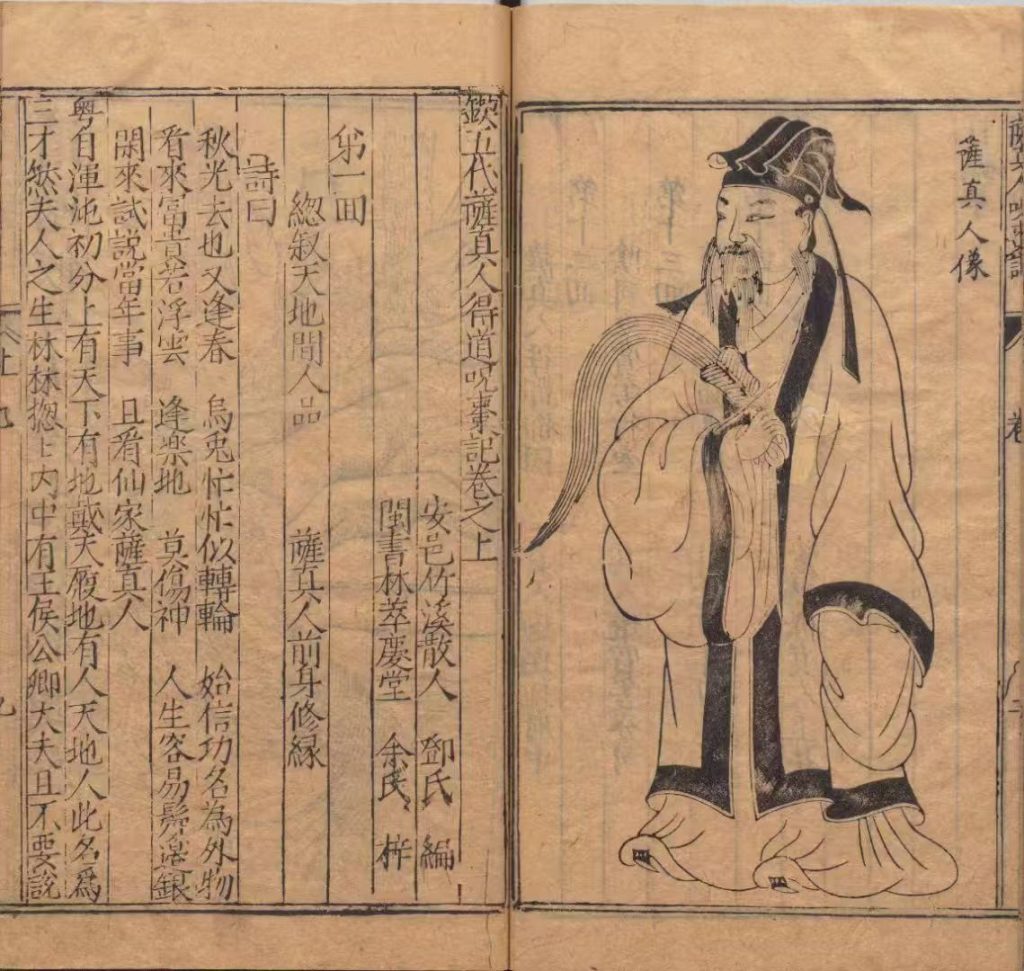 薩真人像
鍥五代薩真人得道呪棗記卷之上
安邑竹溪散人 鄧氏 編
閩書林萃慶堂 余氏 梓
第一回
緫叙天地間人品 薩真人前身修縁
詩曰
秋光去也又逢春 烏兎忙忙似轉輪 始信功名為外物
看來富貴若浮雲 逢楽地 莫傷神 人生容易鬂邉銀
閑來試説當年事 且看仙家薩真人
粤自渾沌初分上有天下有地戴天履地有人天地人此名爲
三才然夫人之生林林緫緫内中有王侯公卿大夫且不要説